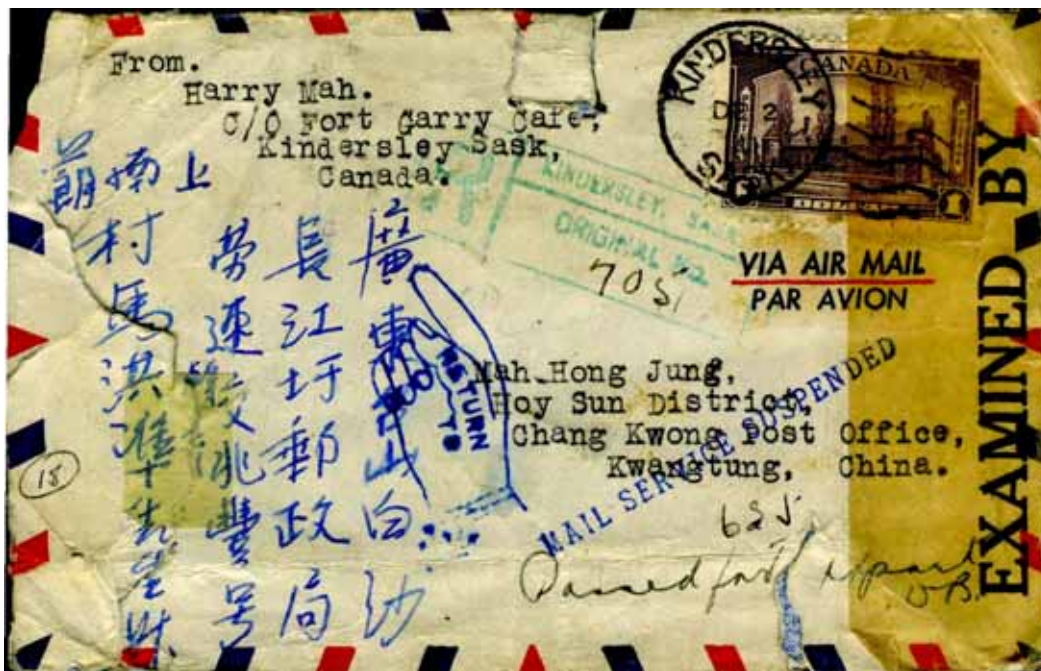 From.
Harry Mah.
C/O Fort Garry Cafe,
Kindersley Sask,
Canada.
KINDERSLEY
DE 2
SASK
CANADA
1
KINDERSLEY, SASK
ORIGINAL NO.
705
VIA AIR MAIL
PAR AVION
EXAMINED BY
RETURN
TO
Mah Hong Jung,
Hoy Sun District,
Chang Kwong Post Office,
Kwangtung, China.
MAIL SERVICE SUSPENDED
625
Passed for
15
廣東台山白沙
長江圩郵政局
勞連兆豐号
上南蓢
村馬洪準先生